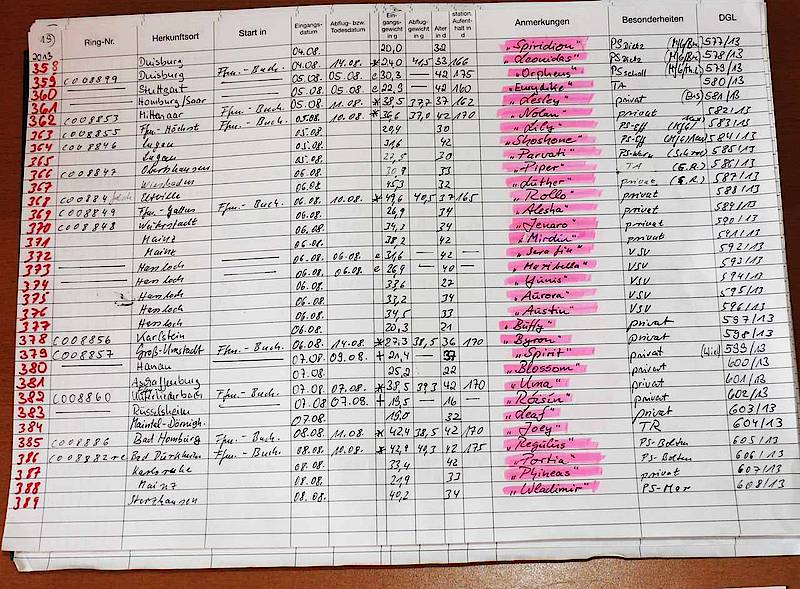 19)
Ring-Nr. Herkunftsort Start in Eingangs-datum Abflug- bzw. Todesdatum Ein-gangs-gewicht in g Abflug-gewicht in g Alter in d station. Aufent-halt in d Anmerkungen Besonderheiten DGL
2013
358 Duisburg 04.08. 20,0 32 „Spiridion" 577/13
359 C008899 Duisburg Ffm.-Buch. 04.08. 14.08. * 24,0 40,5 33 166 „Leonidas" 578/13
360 Stuttgart 05.08. 05.08. e 30,3 — 42 175 „Orpheus" 579/13
361 Homburg/Saar 05.08. 05.08. e 22,9 — 42 160 „Eurydike" TA 580/13
362 C008853 Mittenaar Ffm.-Buch. 05.08. 11.08. * 38,5 37,7 37 162 „Lesley" privat 581/13
363 C008855 Ffm.-Höchst Ffm.-Buch. 05.08. 10.08. * 36,6 37,0 42 170 „Nolan" privat 582/13
364 C008846 Lugau 05.08. 29,4 30 „Lily" 583/13
365 Lugau 05.08. 31,6 42 „Shoshone" 584/13
366 C008847 Obertshausen 05.08. 30 „Parvati" 585/13
367 Wiesbaden 06.08. 33 „Piper" TA (G.R.) 586/13
368 Ffm.-Buch. 06.08. 45,3 32 „Luther" privat (G.R.) 587/13
369 C008849 Ffm.-Gallus 06.08. 10.08. * 49,6 40,5 37 165 „Rollo" privat 588/13
370 C008848 Weiterstadt 06.08. 26,9 34 „Alesha" privat 589/13
371 Mainz 06.08. 34,2 34 „Jenaro" privat 590/13
372 Mainz 06.08. 38,2 42 „Mirdin" privat 591/13
373 Hassloch 06.08. 06.08. e 31,6 — 42 „Serafin" VSV 592/13
374 Hassloch 06.08. 06.08. e 26,9 — 40 „Maribella" VSV 593/13
375 Hassloch 06.08. 33,6 27 „Yunis" VSV 594/13
376 Hassloch 06.08. 37,2 34 „Aurora" VSV 595/13
377 Hassloch 06.08. 34,5 33 „Austin" VSV 596/13
378 C008856 Karlstein 06.08. 20,3 21 „Büffy" privat 597/13
379 C008857 Groß-Umstadt Ffm.-Buch. 06.08. 14.08. * 27,3 38,5 36 170 „Byron" privat 598/13
380 Hanau 07.08. 09.08. + 21,4 — 37 „Spirit" privat 599/13
381 Aschaffenburg 07.08. 25,2 22 „Blossom" privat 600/13
382 C008860 Unterliederbach Ffm.-Buch. 07.08. 07.08. * 38,5 39,5 42 170 „Uma" privat 601/13
383 Rüsselsheim 07.08. 07.08. + 19,5 — 16 „Róisín" privat 602/13
384 Maintal-Dörnigh. 07.08. 19,0 32 „Leaf" privat 603/13
385 C008886 Bad Homburg Ffm.-Buch. 08.08. 11.08. * 42,4 38,5 42 170 „Joey" TR 604/13
386 C008882 Bad Dürkheim Ffm.-Buch. 08.08. 10.08. * 42,9 40,3 42 175 „Regulus" PS-Bolten 605/13
387 Karlsruhe 08.08. 33,4 42 „Portia" PS-Bolten 606/13
388 Mainz 08.08. 21,9 33 „Phineas" privat 607/13
389 Sterzhausen 08.08. 40,2 34 „Wladimir" PS-Mar 608/13